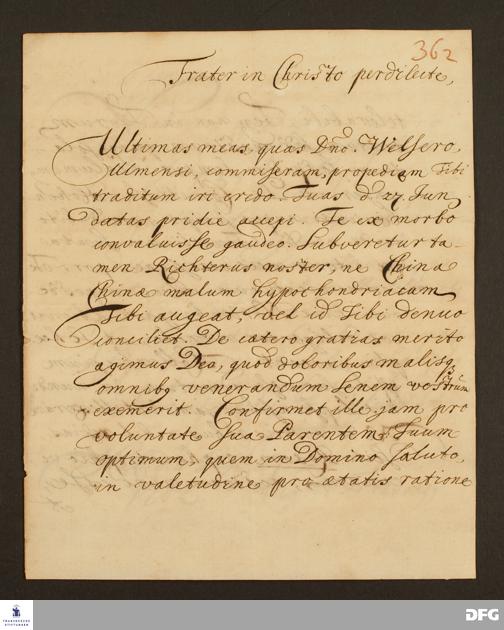 362
Frater in Christo perdilecte,
Ultimas meas, quas Dnō. Welsero,
Ulmensi, commiseram, propediem Tibi
traditum iri credo. Tuas d. 27. Jun.
datas pridie accepi. Te ex morbo
convaluisse gaudeo. Subveretur ta-
men Richterus noster, ne China
Chinæ malum hypochondriacum
Tibi augeat, vel id Tibi denuo
conciliet. De cætero gratias merito
agimus Deo, quod doloribus malisq;
omnibq venerandum Senem vestrum
exemerit. Confirmet ille jam pro
voluntate sua Parentem Tuum
optimum, quem in Domino saluto,
in valetudine pro ætatis ratione
FRANCKESCHE
STIFTUNGEN
DFG